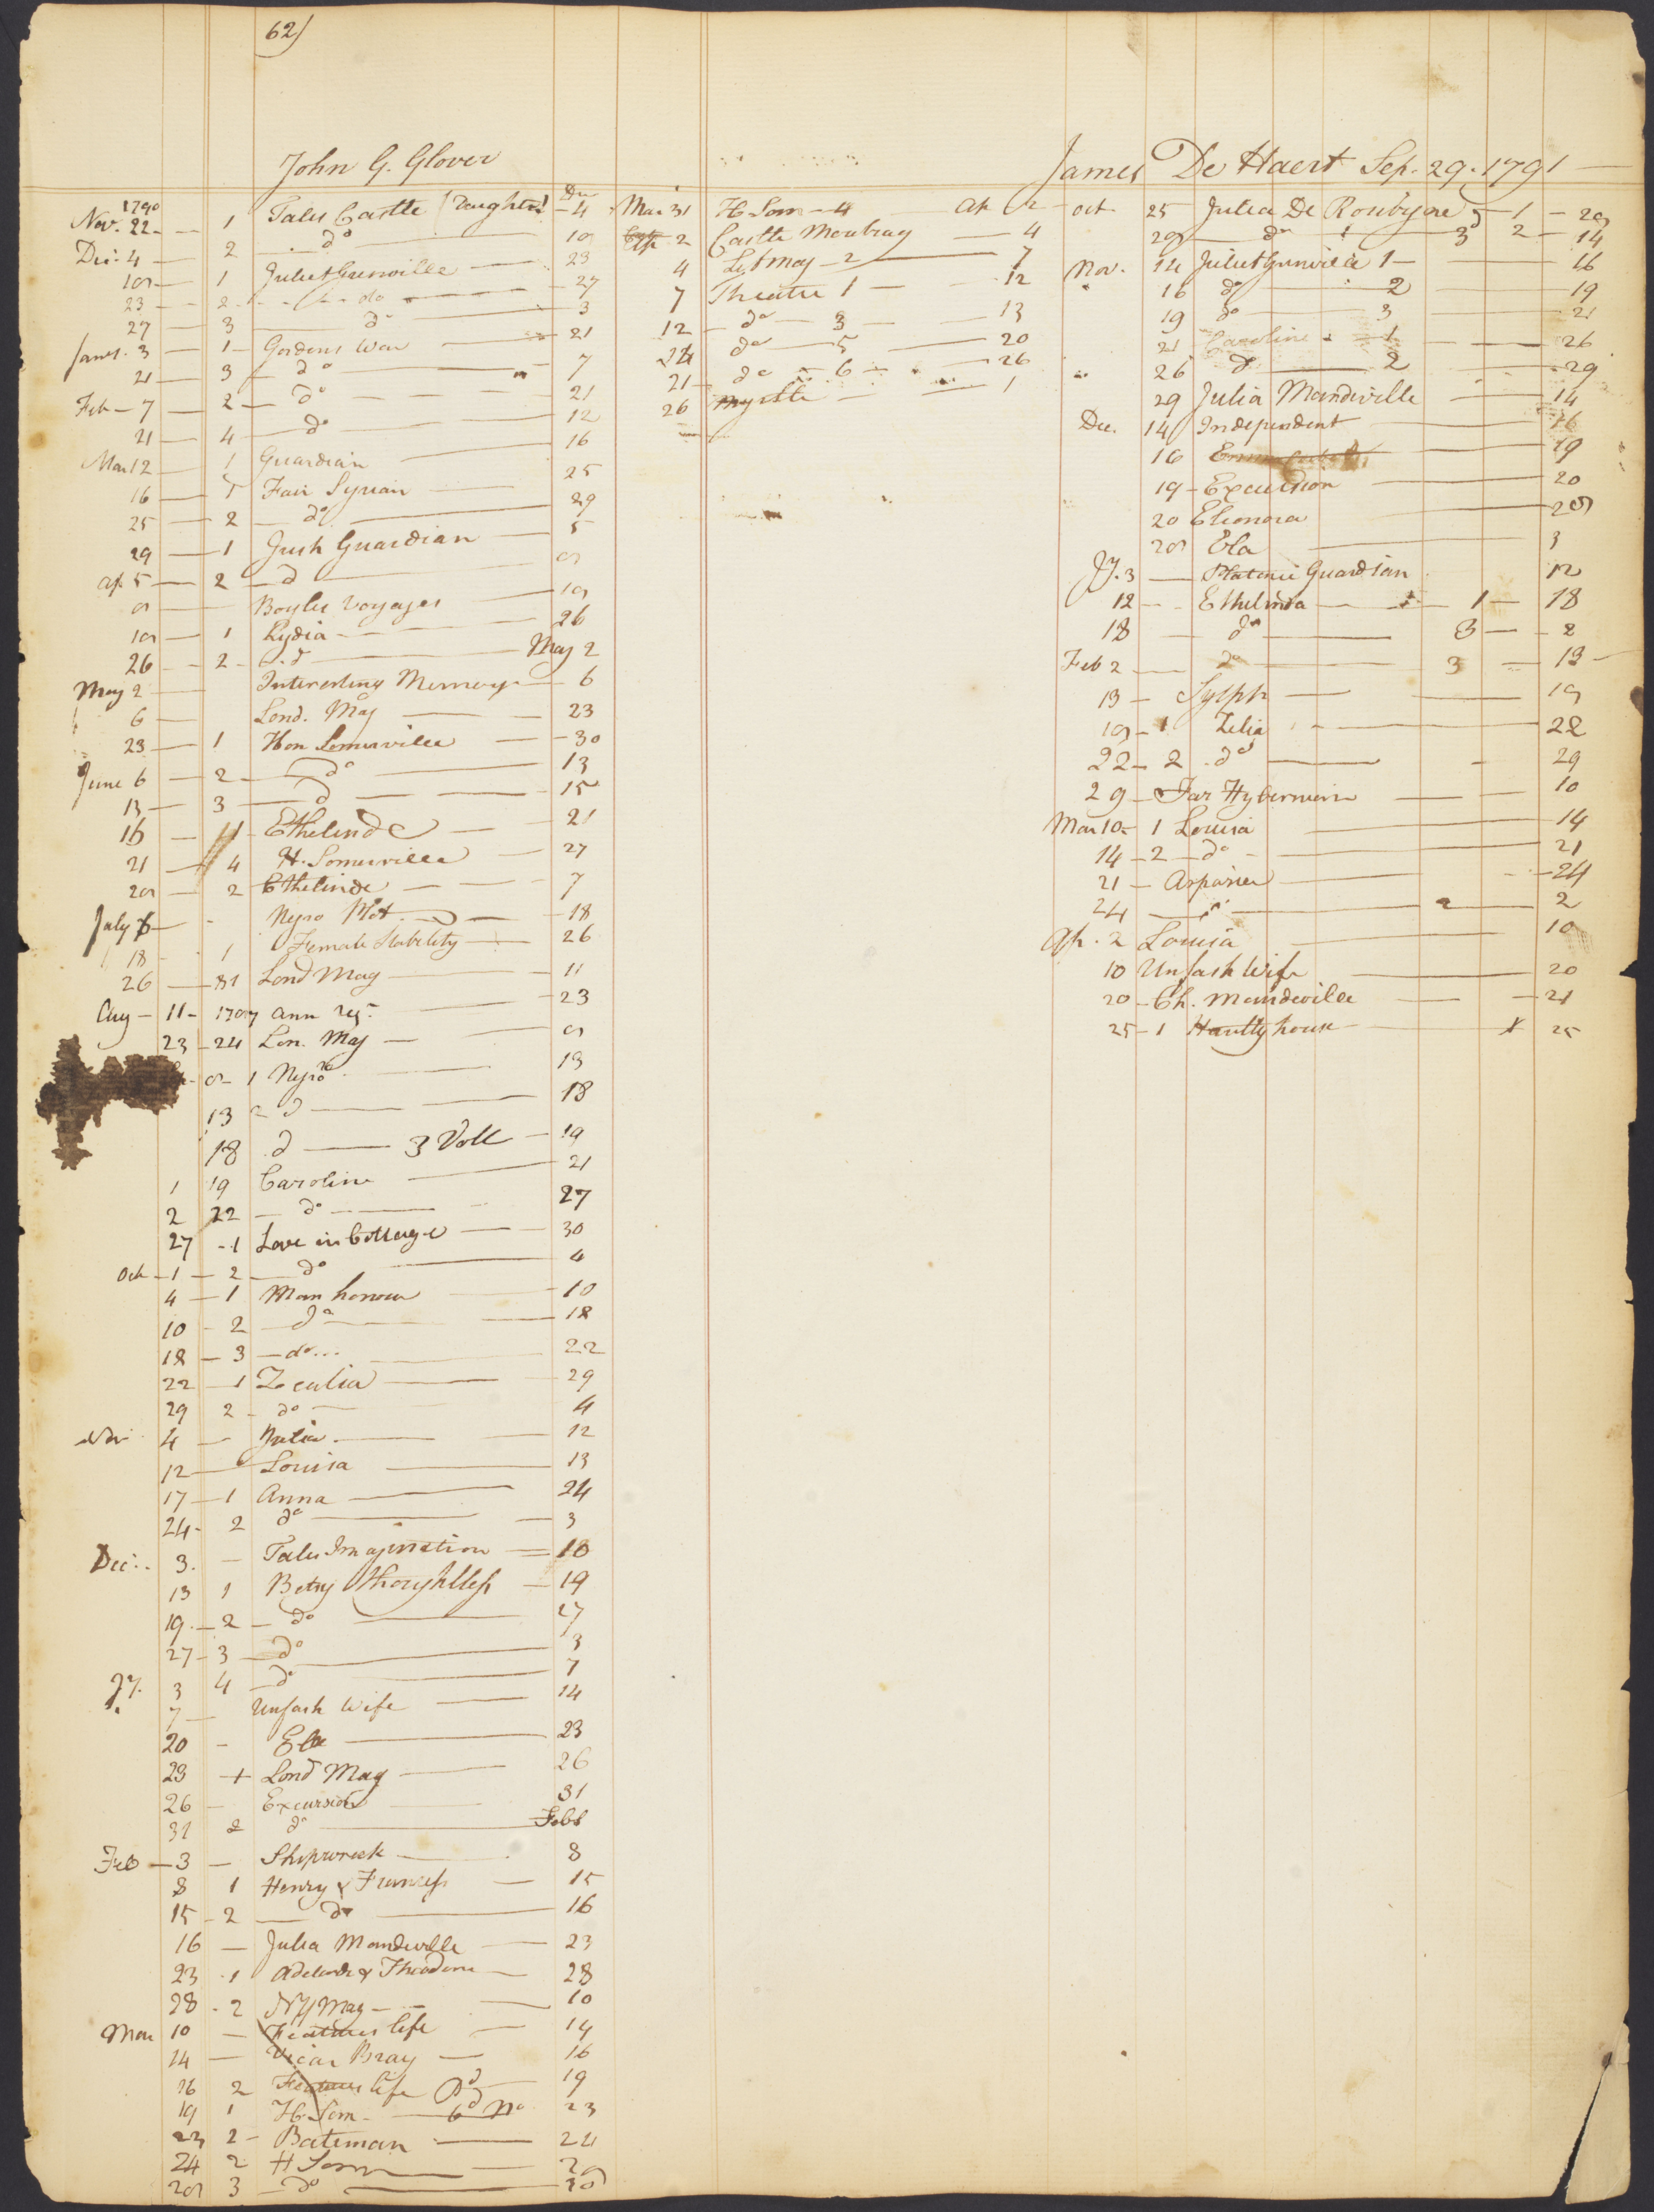 62)
John G. Glover
1790 Dec
Nov. 22 — 1 Tales Castle (Daughter) — 4
Dec. 4 — 2 do — 10
10 — 1 Juliet Grenville — 23
23 — 2 do — 27
27 — 3 do — 3
Jany. 3 — 1 Gordens War — 21
21 — 3 do — 7
Feb — 7 — 2 — do — 21
21 — 4 — do — 12
Mar 12 — 1 Guardian — 16
16 — 1 Fair Syrian — 25
25 — 2 — do — 29
29 — 1 Guardian — 5
Ap. 5 — 2 — d — 9
9 — Boyles Voyages — 19
19 — 1 Lydia — 26
26 — 2 — d — May 2
May 2 — Interesting Memoys — 6
6 — Lond. Mag — 23
23 — 1 Hon Somerville — 30
June 6 — 2 — do — 13
13 — 3 — d — 15
16 — 1 Ethelinde — 21
21 — 4 H. Somerville — 27
28 — 2 Ethelinde — 7
July — Negro Plot — 18
18 — 1 Female Stability — 26
26 — 81 Lond Mag — 11
Aug — 11 — ann reg. — 23
23 — 24 Lon. Mag — 9
9 — 1 Negro — 13
13 2 d — 18
18 d — 3 Voll — 19
1 19 Caroline — 21
2 22 — do — 27
27 — 1 Love in Cottage — 30
Oct — 1 — 2 — do — 4
4 — 1 Man honour — 10
10 — 2 — do — 18
18 — 3 — do — 22
22 — 1 Zoculia — 29
29 2 — do — 4
Nov 4 — Julia — 12
12 — Louisa — 13
17 — 1 Anna — 24
24 — 2 do — 3
Dec. 3. — Tales Imagination — 18
13 1 Betsy Thoughtless — 19
19 — 2 — do — 27
27 — 3 — do — 3
Jy. 3 4 — do — 7
7 — Unfash Wife — 14
20 — Ela — 23
23 — + Lond Mag — 26
26 — Excursion — 31
31 2 do — Feb
Feb — 3 — Shipwreck — 8
8 1 Henry & Frances — 15
15 — 2 — do — 16
16 — Julia Mandeville — 23
23 — 1 Adelaide & Theodore — 28
28 — 2 NY Mag — 10
Mar 10 — Features life — 14
14 — Vicar Bray — 16
16 2 Features life Pd — 19
19 1 H. Som — 6d No 23
23 2 — Bateman — 24
24 2 H Som — 29
29 3 — do — 
Mar 31 H Som — 4 — Ap 2
Ap 2 Castle Mowbray — 4
4 Let Mag — 2 — 7
7 Theatre 1 — 12
12 — do — 3 — 13
14 do — 5 — 20
21 — do — 6 — 26
26 Myrtle — 1
James De Haert Sep. 29. 1791
Oct. 25 Julia De Roubigne — 1 — 29
29 — do — 2 — 14
Nov. 14 Juliet Grenville 1 — 16
16 do — 2 — 19
19 do — 3 — 21
21 Caroline — 1 — 26
26 do — 2 — 29
29 Julia Mandeville — 14
Dec. 14 Independent — 16
16 — 19
19 — Excursion — 20
20 Elionora — 28
28 Ela — 3
Jy. 3 — Platonic Guardian 12
12 — Ethelinda — 1 — 18
18 — do — 3 — 2
Feb 2 — do — 3 — 13
13 — Sylph — 19
19 — 1 Zelia — 22
22 — 2 do — 29
29 — Fair Hybernian — 10
Mar 10 — 1 Louisa — 14
14 — 2 — do — 21
21 — Aspasia — 24
24 — do — 2 — 2
Ap. 2 Louisa — 10
10 Unfash Wife — 20
20 — Ch. Mandeville — 21
25 — 1 Hartly house — 25